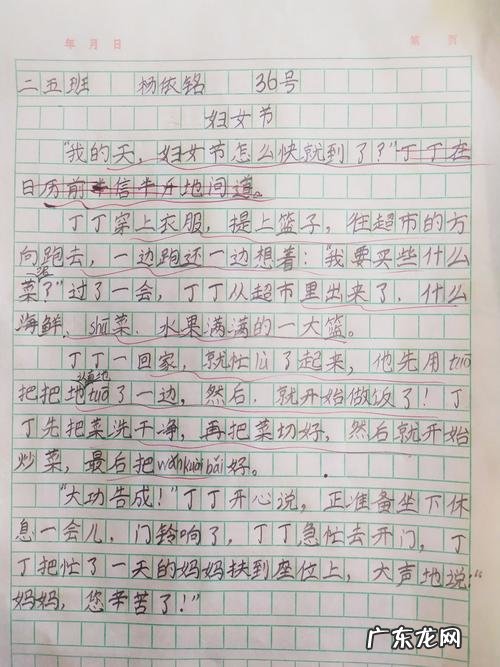 年 月 日 第 页
二五班 杨依铭 36号
妇女节
“我的天，妇女节怎么快就到了？”丁丁在
日历前半信半疑地问道。
丁丁穿上衣服，提上篮子，往超市的方
向跑去，一边跑还一边想着：“我要买些什么
菜？”过了一会，丁丁从超市里出来了，什么
海鲜、shū菜、水果满满的一大篮。
丁丁一回家，就忙lù了起来，他先用tuō
把把地认真地tuō了一边，然后，就开始做饭了！丁
丁先把菜洗干净，再把菜切好，然后就开始
炒菜，最后把wǎnkuàibǎi好。
“大功告成！”丁丁开心说，正准备坐下休
息一会儿，门铃响了，丁丁急忙去开门，丁
丁把忙了一天的妈妈扶到座位上，大声地说：“
妈妈，您辛苦了！”
广东龙网